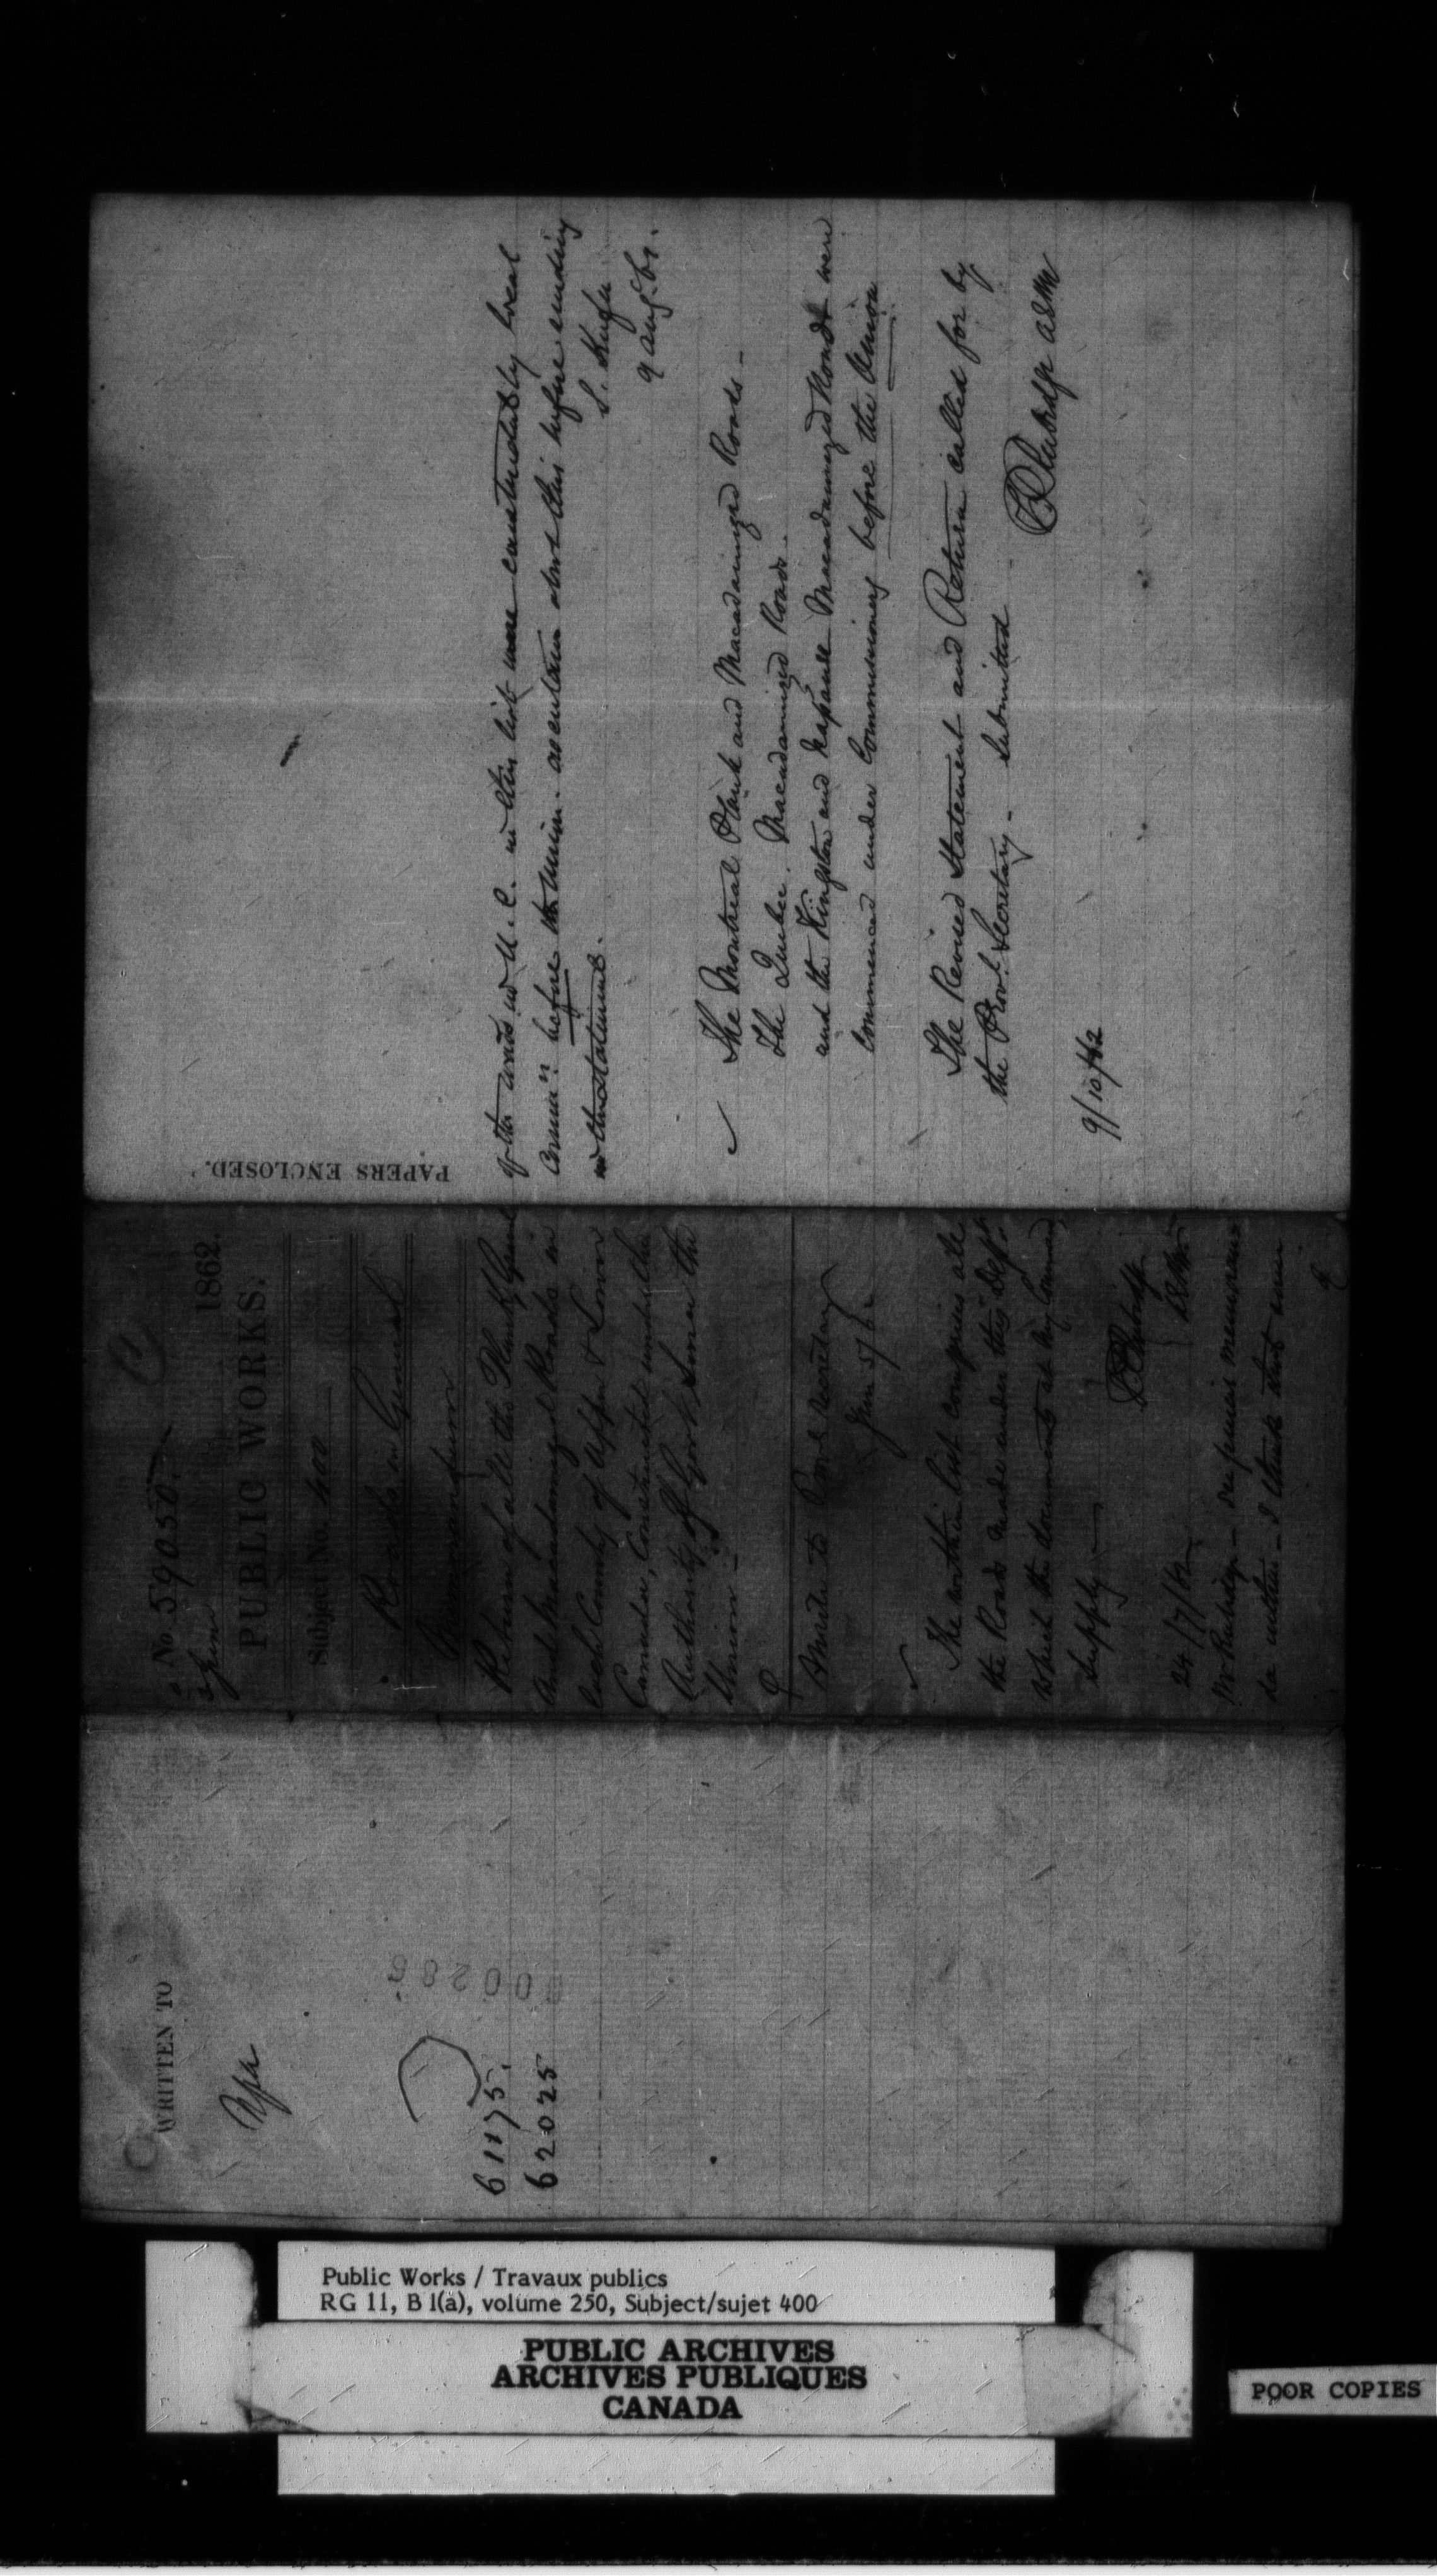 No 59050.
Jan
1862.
PUBLIC WORKS.
Subject No. 400
Roads in General
Memorandum
Return of all the Plank Gravel
and Macadamized Roads in
each County of Upper & Lower
Canada, Constructed under the
Authority of Gov't since the
Union -
Answer to Prov'l Secretary
The within list comprises all
the Roads made under this Dep't
which the documents at my Command
supply -
24/7/62
Mr Rubidge -
PAPERS ENCLOSED.
of the roads in U. C. in this list were constructed by local
Comm'rs before the Union. ascertain about this before sending
in this statement.
S. Keefer
9 Aug
The Montreal Plank and Macadamized Roads -
The Quebec Macadamized Roads -
and the Kingston and Napanee Macadamized Roads were
commenced under Commissioners before the Union
The Revised Statement and Return called for by
the Prov'l Secretary - submitted
9/10/62
WRITTEN TO
00286
61175.
62025
Public Works / Travaux publics
RG 11, B 1(a), volume 250, Subject/sujet 400
PUBLIC ARCHIVES
ARCHIVES PUBLIQUES
CANADA
POOR COPIES